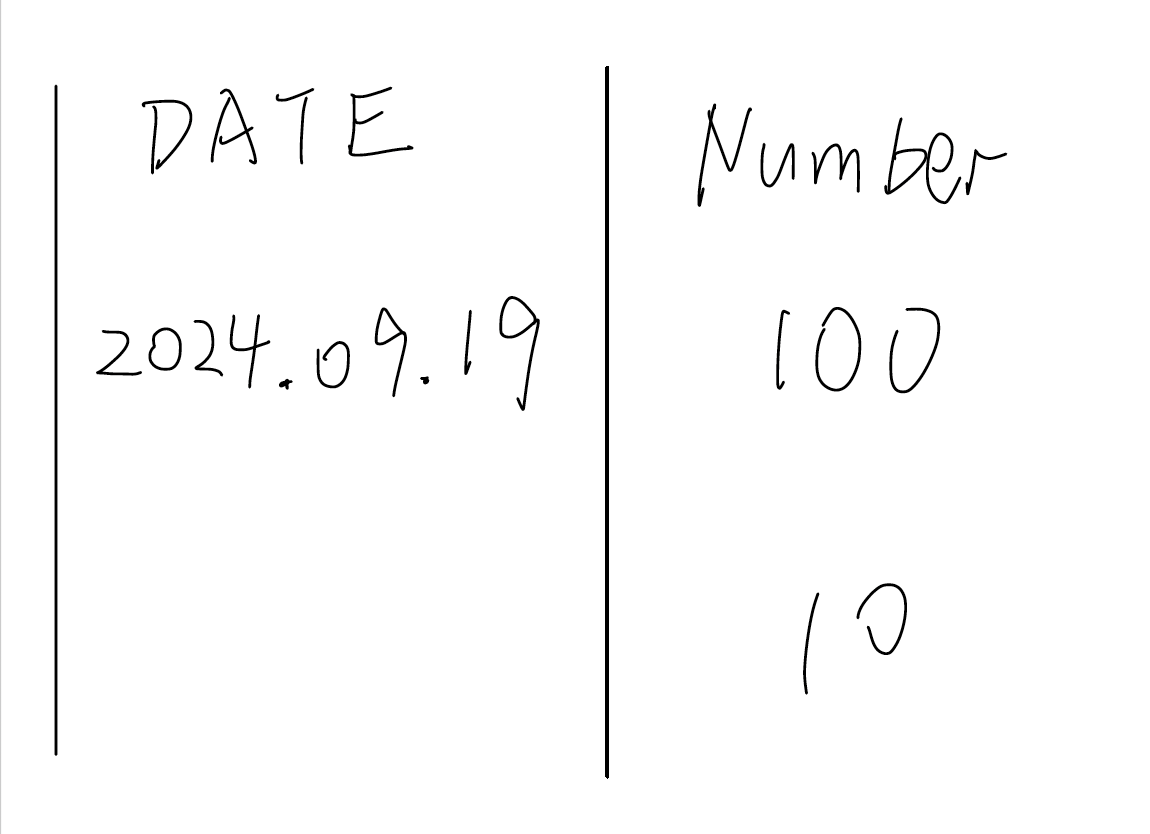 DATE Number
2024.09.19 100
10